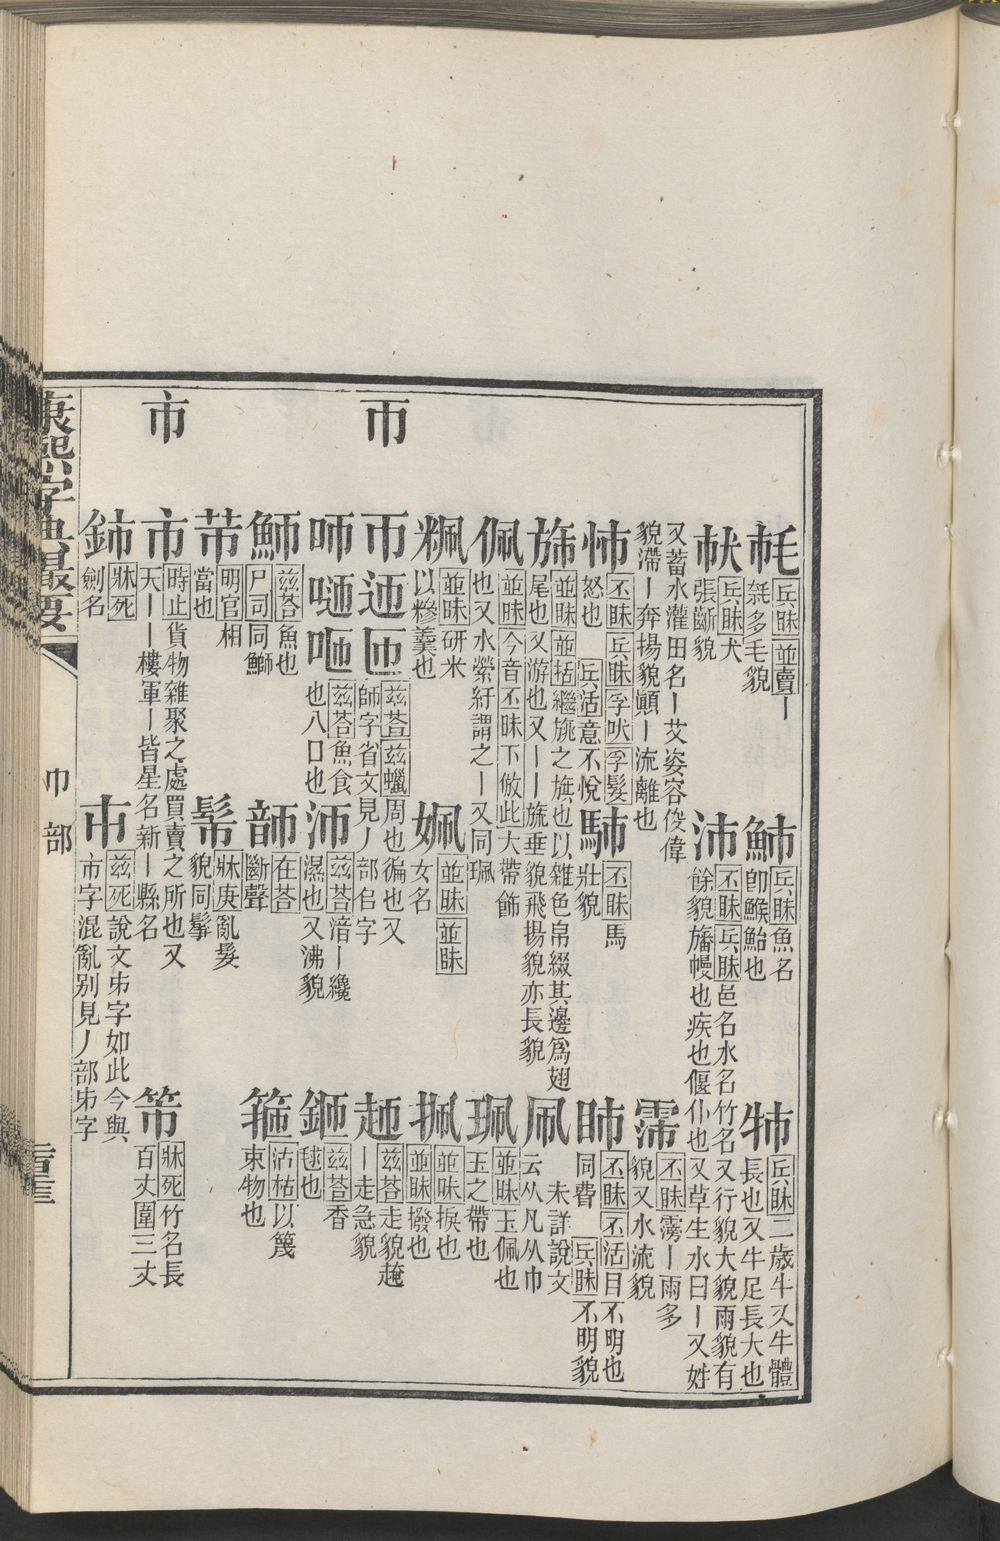 毦 兵眛 並賣 丨毦多毛貌
魳 兵眛 魚名卽鯸鮐也
㹃 兵眛 二歲牛又牛體長也又牛足長大也
兵眛 犬張齗貌
沛 丕眛 兵眛 邑名水名竹名又行貌大貌雨貌有餘貌旛幔也疾也偃仆也又草生水曰丨又姓
又蓄水灌田名丨艾姿容俊偉貌滯丨奔揚貌顚丨流離也
霈 丕眛 霶丨雨多貌又水流貌
怖 丕眛 兵眛 孚吠 孚髮 怒也 兵活 意不悅
䮀 丕眛 馬壯貌
昁 丕眛 丕活 目不明也同㬹 兵眛 不明貌
旆 並眛 並括 繼旐之旗也以雜色帛綴其邊爲翅尾也又游也又丨丨旒垂貌飛揚貌亦長貌
凧 未詳說文云从凡从巾
佩 並眛 今音丕眛下倣此 大帶飾也又水縈紆謂之丨又同珮
珮 並眛 玉佩也玉之帶也
並眛 硏米以糝羹也
姵 女名 並眛 並眛
並昧 捩也 並眛 撥也
帀
帀迊匝 茲荅 茲蠟 周也徧也又師字省文見丿部㠯字
茲荅 走貌䞄丨走急貌
咂噆㖕 茲荅 魚食也入口也
沛 茲荅 湆丨纔濕也又沸貌
鉔 茲荅 香毬也
魳 茲荅 魚也尸司 同鰤
在荅 斷聲
箍 沽枯 以篾束物也
芇 明官 相當也
髴 牀庚 亂髮貌同鬇
市
市 時止 貨物雜聚之處買賣之所也又天丨丨樓軍丨皆星名新丨縣名
牀死 竹名長百丈圍三丈
鈰 牀死 劍名
巿 茲死 說文巿字如此今與市字混亂別見丿部巿字
康熙字典最要
巾部